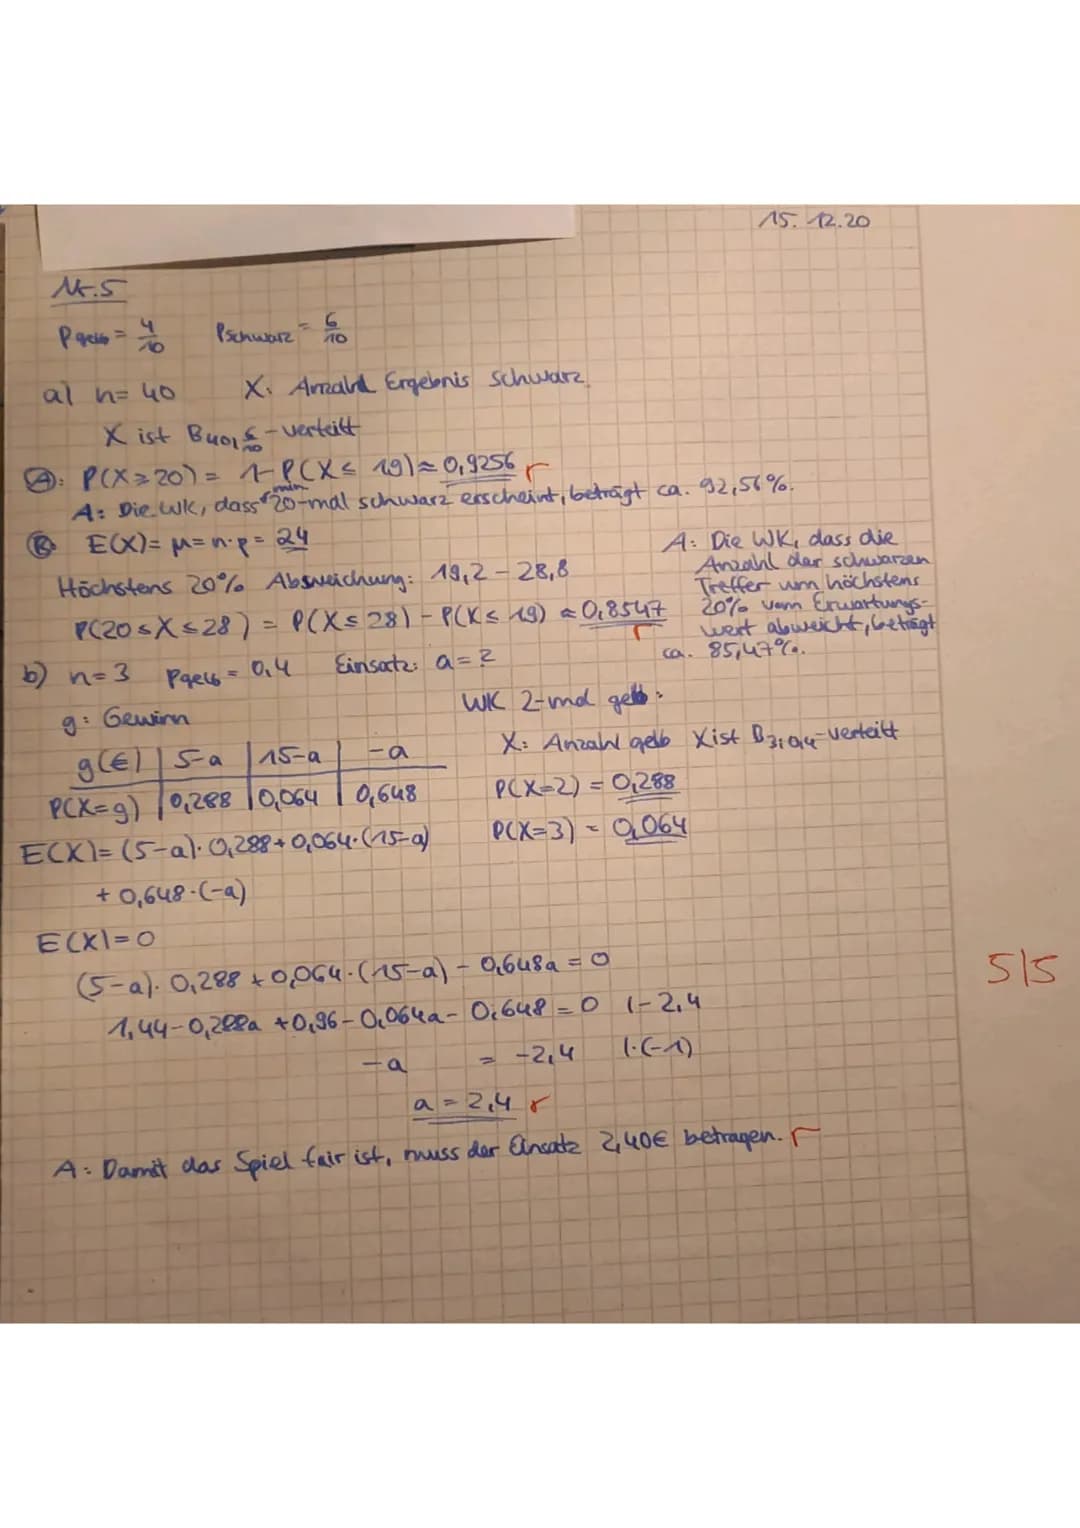 15. 12.20
Nr.5
Pgelb = 4/10 Pschwarz = 6/10
a) n = 40 X: Anzahl Ergebnis schwarz
X ist B40; 6/10 - verteilt
(A): P(X ≥ 20) = 1 - P(X ≤ 19) ≈ 0,9256
A: Die WK, dass min 20-mal schwarz erscheint, beträgt ca. 92,56%.
(B) E(X) = μ = n·p = 24
Höchstens 20% Absweichung: 19,2 - 28,8
P(20 ≤ X ≤ 28) = P(X ≤ 28) - P(X ≤ 19) ≈ 0,8547
A: Die WK, dass die
Anzahl der schwarzen
Treffer um höchstens
20% vom Erwartungs-
wert abweicht, beträgt
ca. 85,47%.
b) n = 3 Pgelb = 0,4 Einsatz: a = ?
g: Gewinn
g(€) | 5-a | 15-a | -a
P(X=g) | 0,288 | 0,064 | 0,648
WK 2-mal gelb:
X: Anzahl gelb X ist B3; 0,4 - verteilt
P(X=2) = 0,288
P(X=3) = 0,064
E(X) = (5-a)·0,288 + 0,064·(15-a)
+ 0,648·(-a)
E(X) = 0
(5-a)·0,288 + 0,064·(15-a) - 0,648a = 0
1,44 - 0,288a + 0,96 - 0,064a - 0,648 = 0 |-2,4
-a = -2,4 |·(-1)
a = 2,4
A: Damit das Spiel fair ist, muss der Einsatz 2,40€ betragen.
5/5